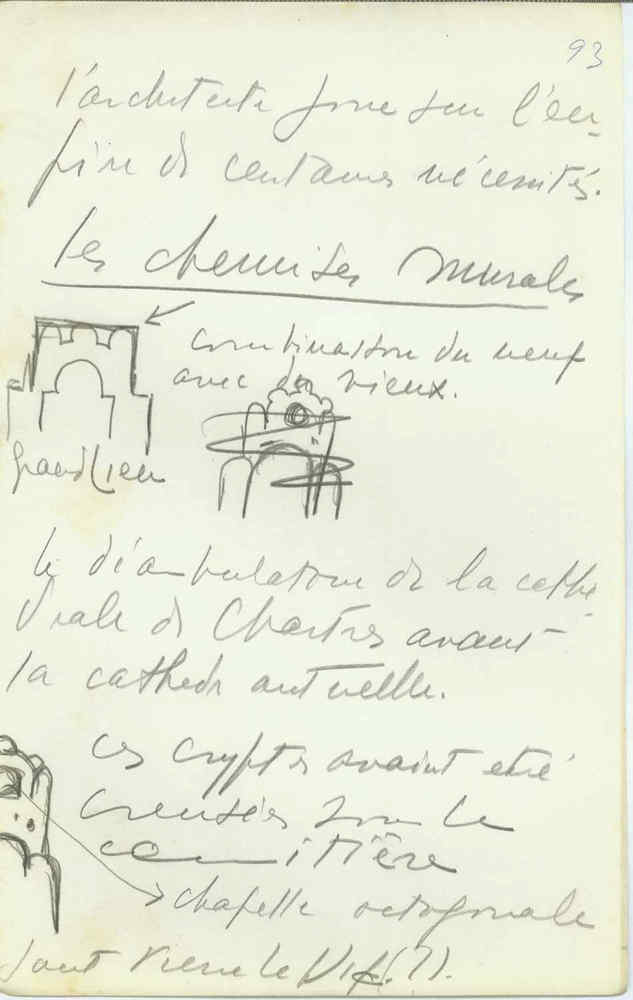 93
l'architecte joue sur l'en-
fin de certaines nécessités.
les chemises murales
combinaison du neuf
avec du vieux.
grand lieu
le déambulatoire de la cathé
drale de Chartres avant
la cathedr actuelle.
ces cryptes avaient été
creusées sous le
cemitière
chapelle octogonale
Saint Pierre le (?).